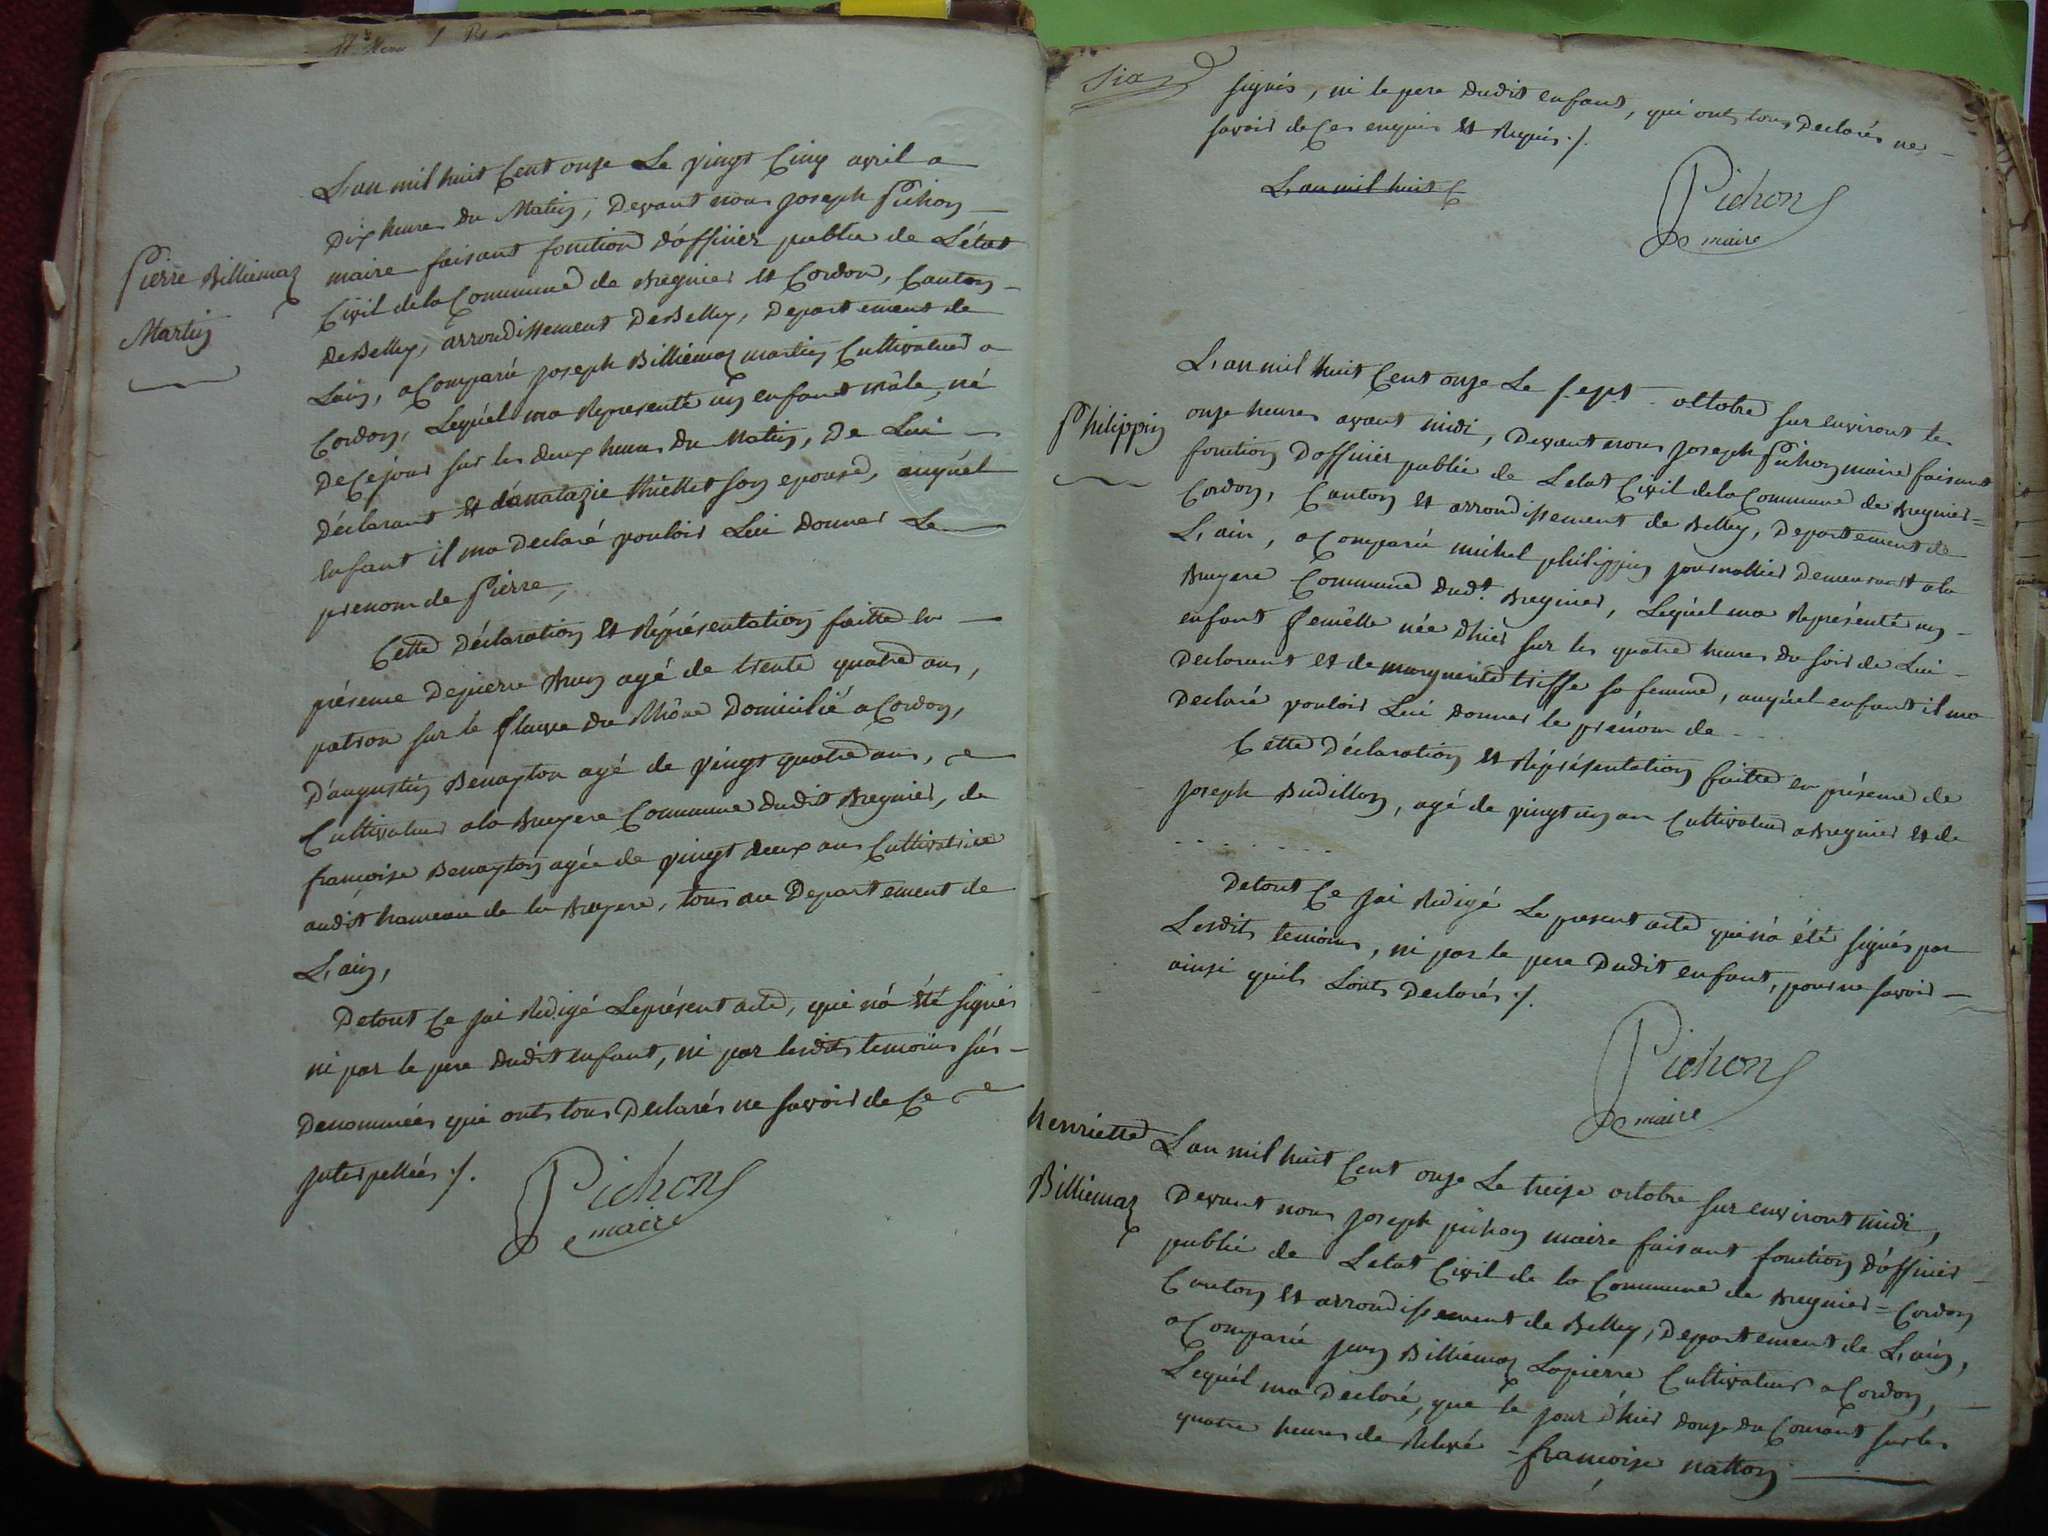 Pierre Billiémaz
Martin
L'an mil huit Cent onze Le vingt Cinq avril a
Dix heures du Matin, Devant nous joseph Pichon
maire faisant fonction d'officier public de L'état
Civil de la Commune de Bregnier et Cordon, Canton
de Belley, arrondissement de Belley, Departement de
Lain, a Comparu joseph Billiémaz martin Cultivateur a
Cordon, Lequél ma Represente un enfant mâle, né
de Ce jour sur les deux heures du Matin, De Lui
déclarant et d'anatazie thiollet son epouse, auquel
enfant il ma Declaré vouloir Lui donner Le
prenom de Pierre,
Cette Déclaration et Réprésentation faitte en
présence de pierre Brun agé de trente quatre ans,
patron sur le fleuve du Rhône Domicilié a Cordon,
D'augustin Benayton agé de vingt quatre ans,
Cultivateur a la Bruyere Commune dudit Bregnier, de
francoise Benayton agée de vingt deux ans Cultivatrice
audit hameau de la Bruyere, tous au Departement de
L'ain,
De tout Ce jai Redigé Le présent acte, qui n'a été signés
ni par le pere dudit enfant, ni par lesdits temoins sus-
denommées qui onts tous Declarés ne savoir de Ce
jnterpellées ./.
Pichon
maire
Six
signés, ni le pere dudit enfant, qui onts tous Declarés ne
savoir de Ces enquis et Requis ./.
L'an mil huit C
Pichon
maire
Philippin
L'an mil huit Cent onze Le sept octobre sur environt les
onze heures avant midi, Devant nous joseph Pichon maire faisant
fonction D'officier public de L'etat Civil de la Commune de Bregnier=
Cordon, Canton et arrondissement de Belley, Departement de
L'ain, a Comparu michel philippin journallier Demeurant a la
Bruyere Commune dudt. Bregnier, Lequél ma Réprésenté un
enfant femélle née d'hier sur les quatre heures du soir de Lui
Declarant et de marguerite trisse sa femme, auquél enfant il ma
Declaré vouloir Lui donner le prénom de
Cette Déclaration et Réprésentation faitte en présence de
joseph Budillon, agé de vingt un an Cultivateur a Bregnier et de
. . . . . . . .
De tout Ce jai Redigé Le present acte qui n'a été signés par
Lesdits temoins, ni par le pere Dudit enfant, pour ne savoir
ainsi quils Lonts Declarés ./.
Pichon
maire
henriette
Billiémaz
L'an mil huit Cent onze Le treize octobre sur environt midi,
Devant nous joseph pichon maire faisant fonction d'officier
public de L'etat Civil de la Commune de Bregnier=Cordon
Canton et arrondissement de Belley, Departement de L'ain,
a Comparu jean Billiémaz Lapierre Cultivateur a Cordon,
Lequél ma Declaré, que le jour d'hier douze du Courant sur les
quatre heures de Relevé francoise natton